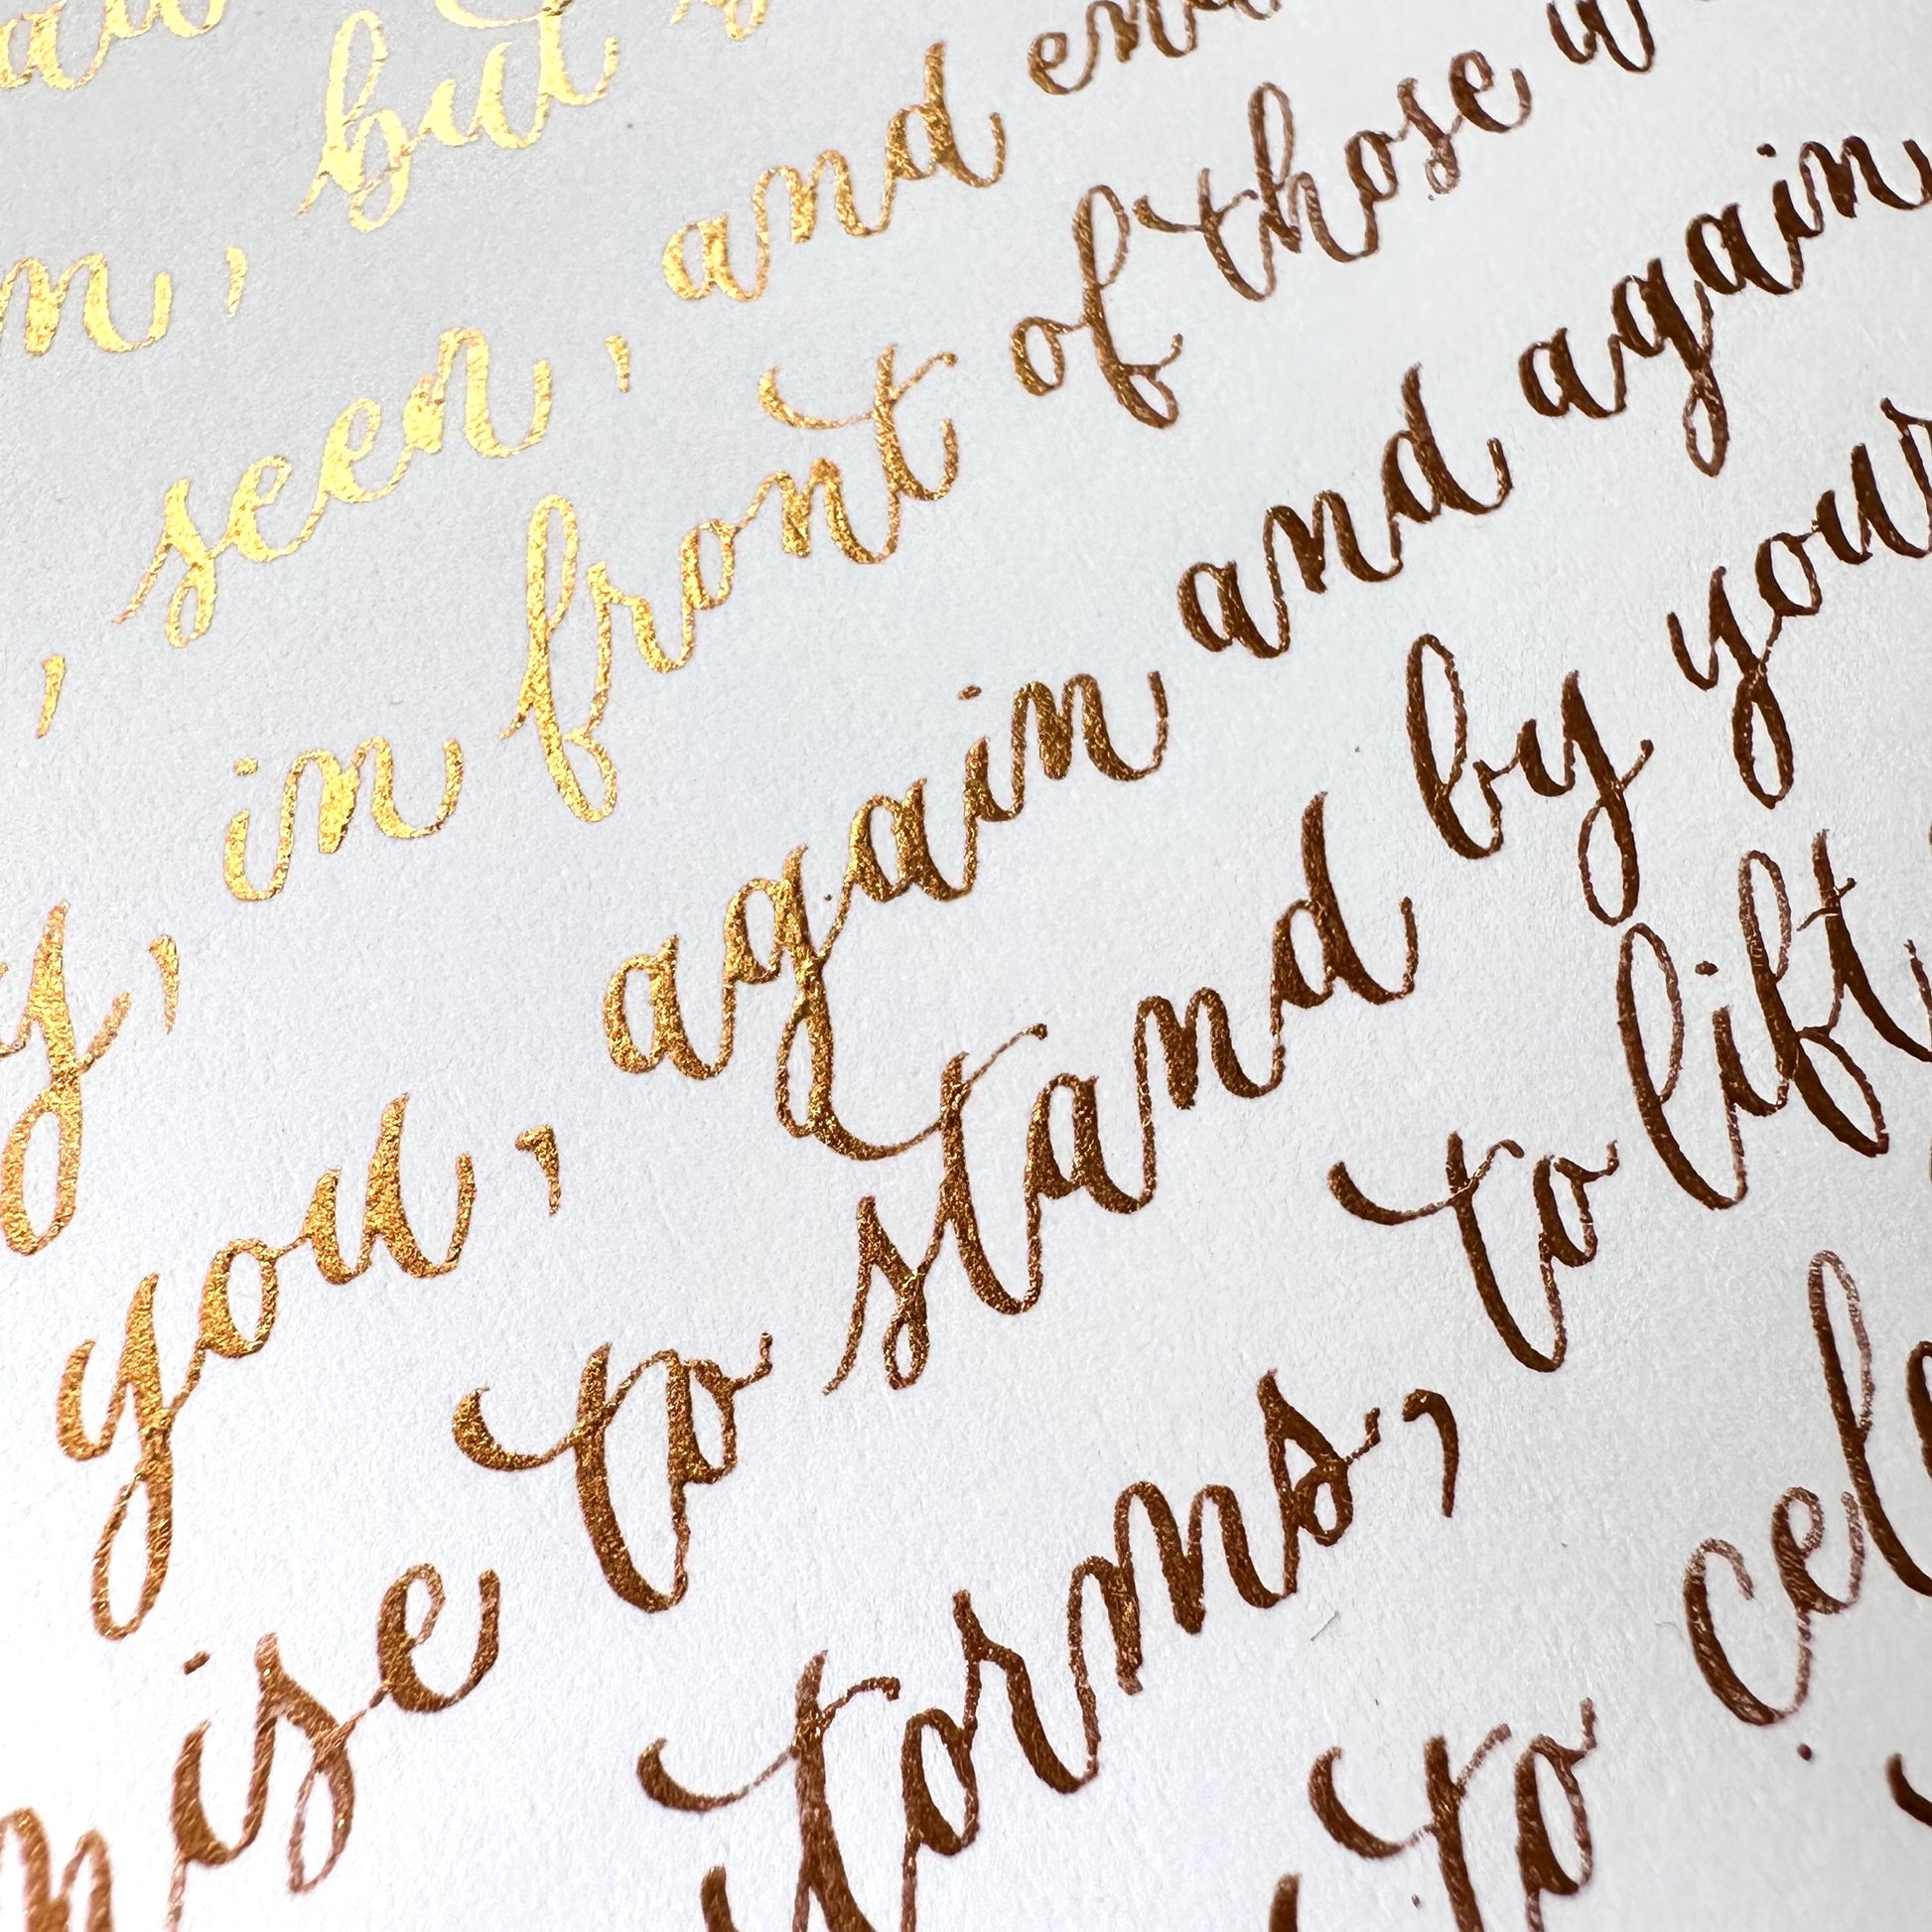 m, but
, seen, and
y, in front of those
you, again and again
mise to stand by your
storms, to lift
to cel